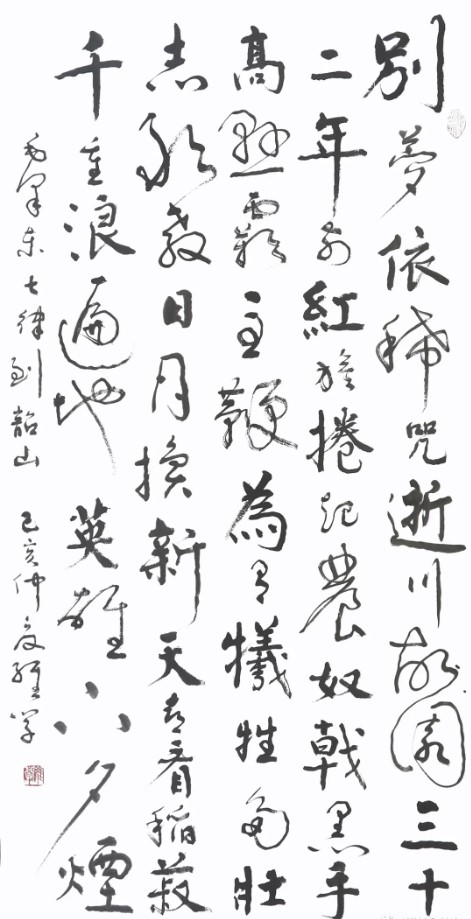 別夢依稀咒逝川故園三十
二年前紅旗捲起農奴戟黑手
高懸霸主鞭為有犧牲多壯
志敢教日月換新天喜看稻菽
千重浪遍地英雄下夕煙
毛澤東七律到韶山 己亥仲夏